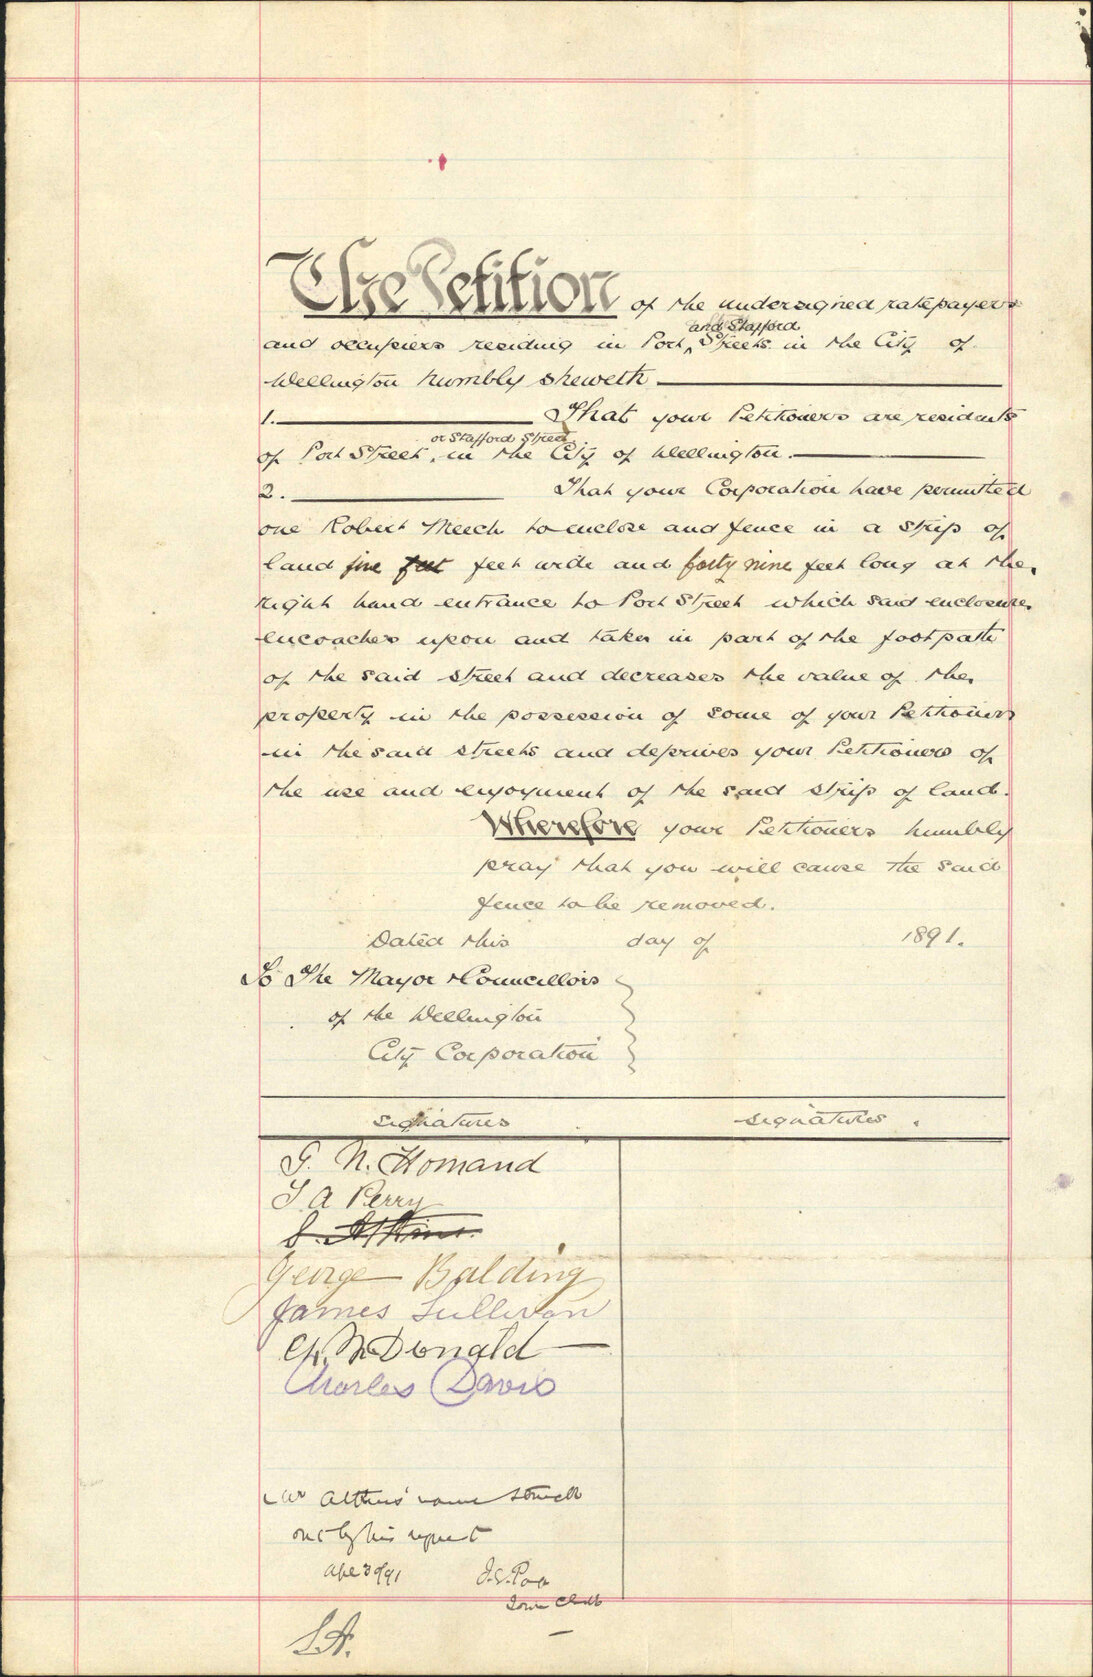 The Petition of the undersigned ratepayers
and Stafford
and occupiers residing in Port Streets in the City of
Wellington humbly sheweth
1. That your Petitioners are residents
or Stafford Street
of Port Street, in the City of Wellington.
2. That your Corporation have permitted
one Robert Meech to enclose and fence in a strip of
land five feet wide and forty nine feet long at the
right hand entrance to Port Street which said enclosure
encoaches upon and takes in part of the footpath
of the said street and decreases the value of the
property in the possession of some of your Petitioners
in the said streets and deprives your Petitioners of
the use and enjoyment of the said strip of land.
Wherefore your Petitioners humbly
pray that you will cause the said
fence to be removed.
Dated this day of 1891.
To The Mayor & Councillors
of the Wellington
City Corporation
Signatures Signatures.
N. Homand
A Perry
George Balding
James Sullivan
McDonald
Charles Davis
Mr name struck
out by his request
Apl 30/91
Town Clerk